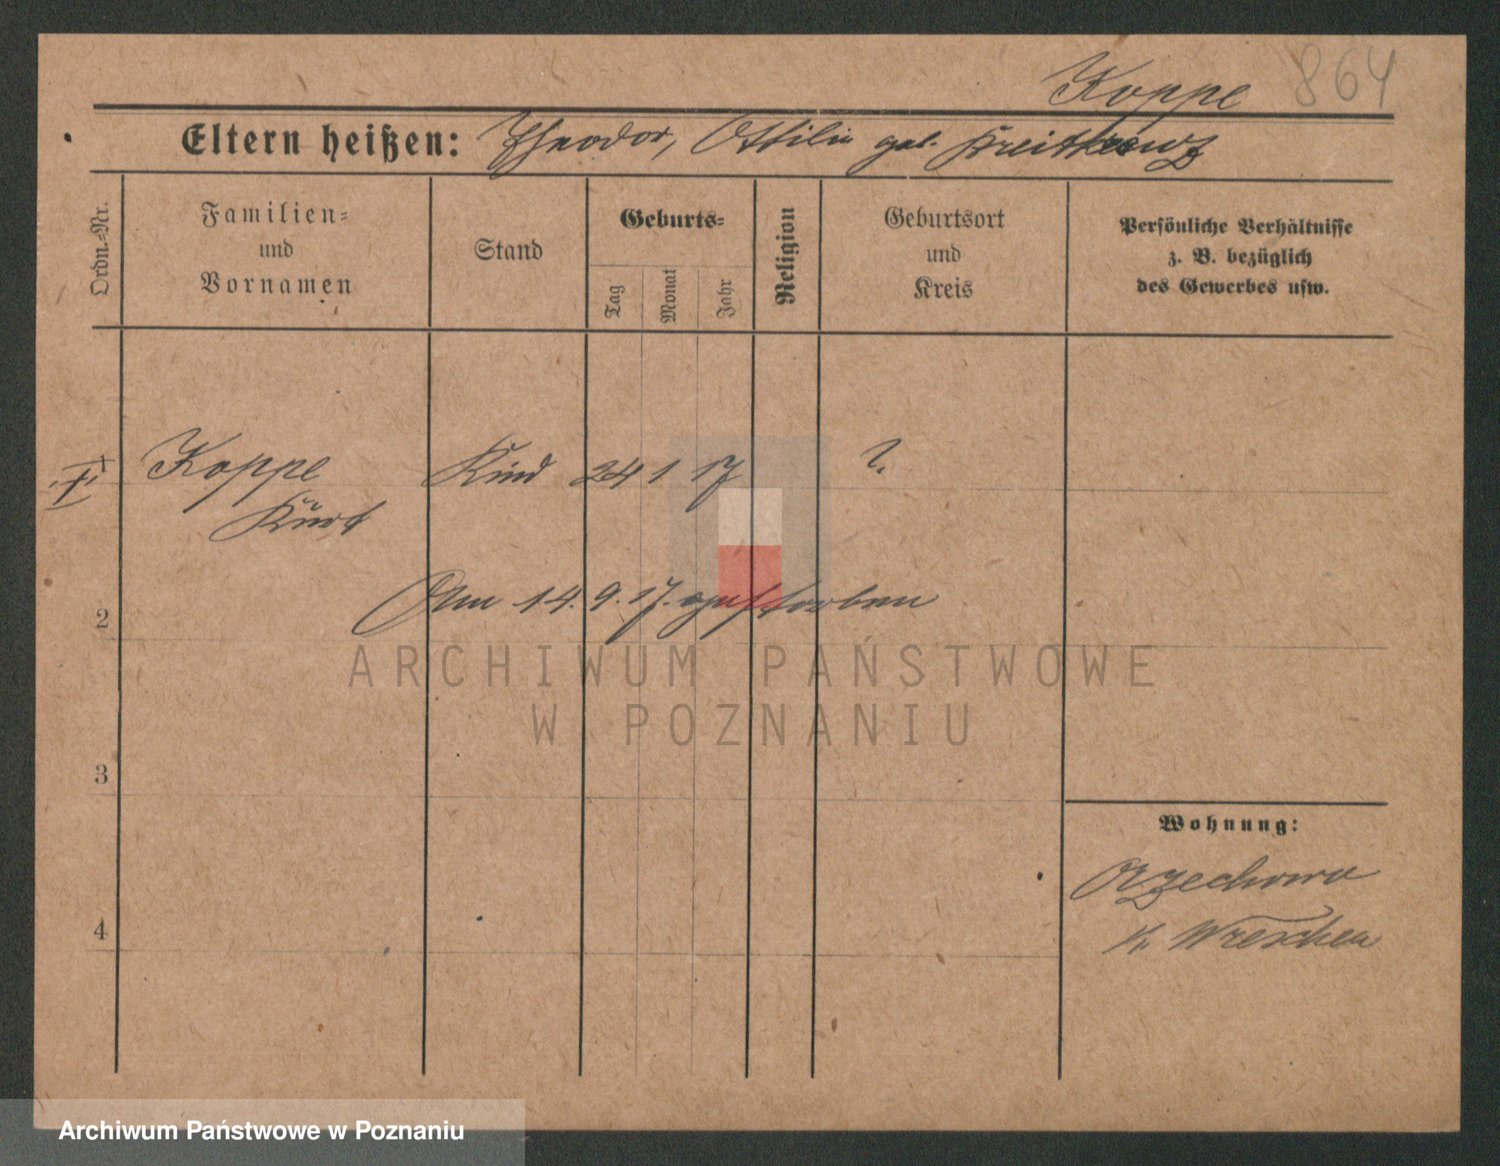 Koppe 864
Eltern heißen: Theodor, Ottilie geb.
Ordn.-Nr.
Familien-
und
Vornamen
Stand
Geburts-
Tag
Monat
Jahr
Religion
Geburtsort
und
Kreis
Persönliche Verhältnisse
z. B. bezüglich
des Gewerbes usw.
Koppe Kind 24 1 17 ?
Kurt
Am 14. 9. 17. gestorben
2
ARCHIWUM PAŃSTWOWE
W POZNANIU
3
Wohnung:
Orzechowo
4
Kr. Wreschen
Archiwum Państwowe w Poznaniu